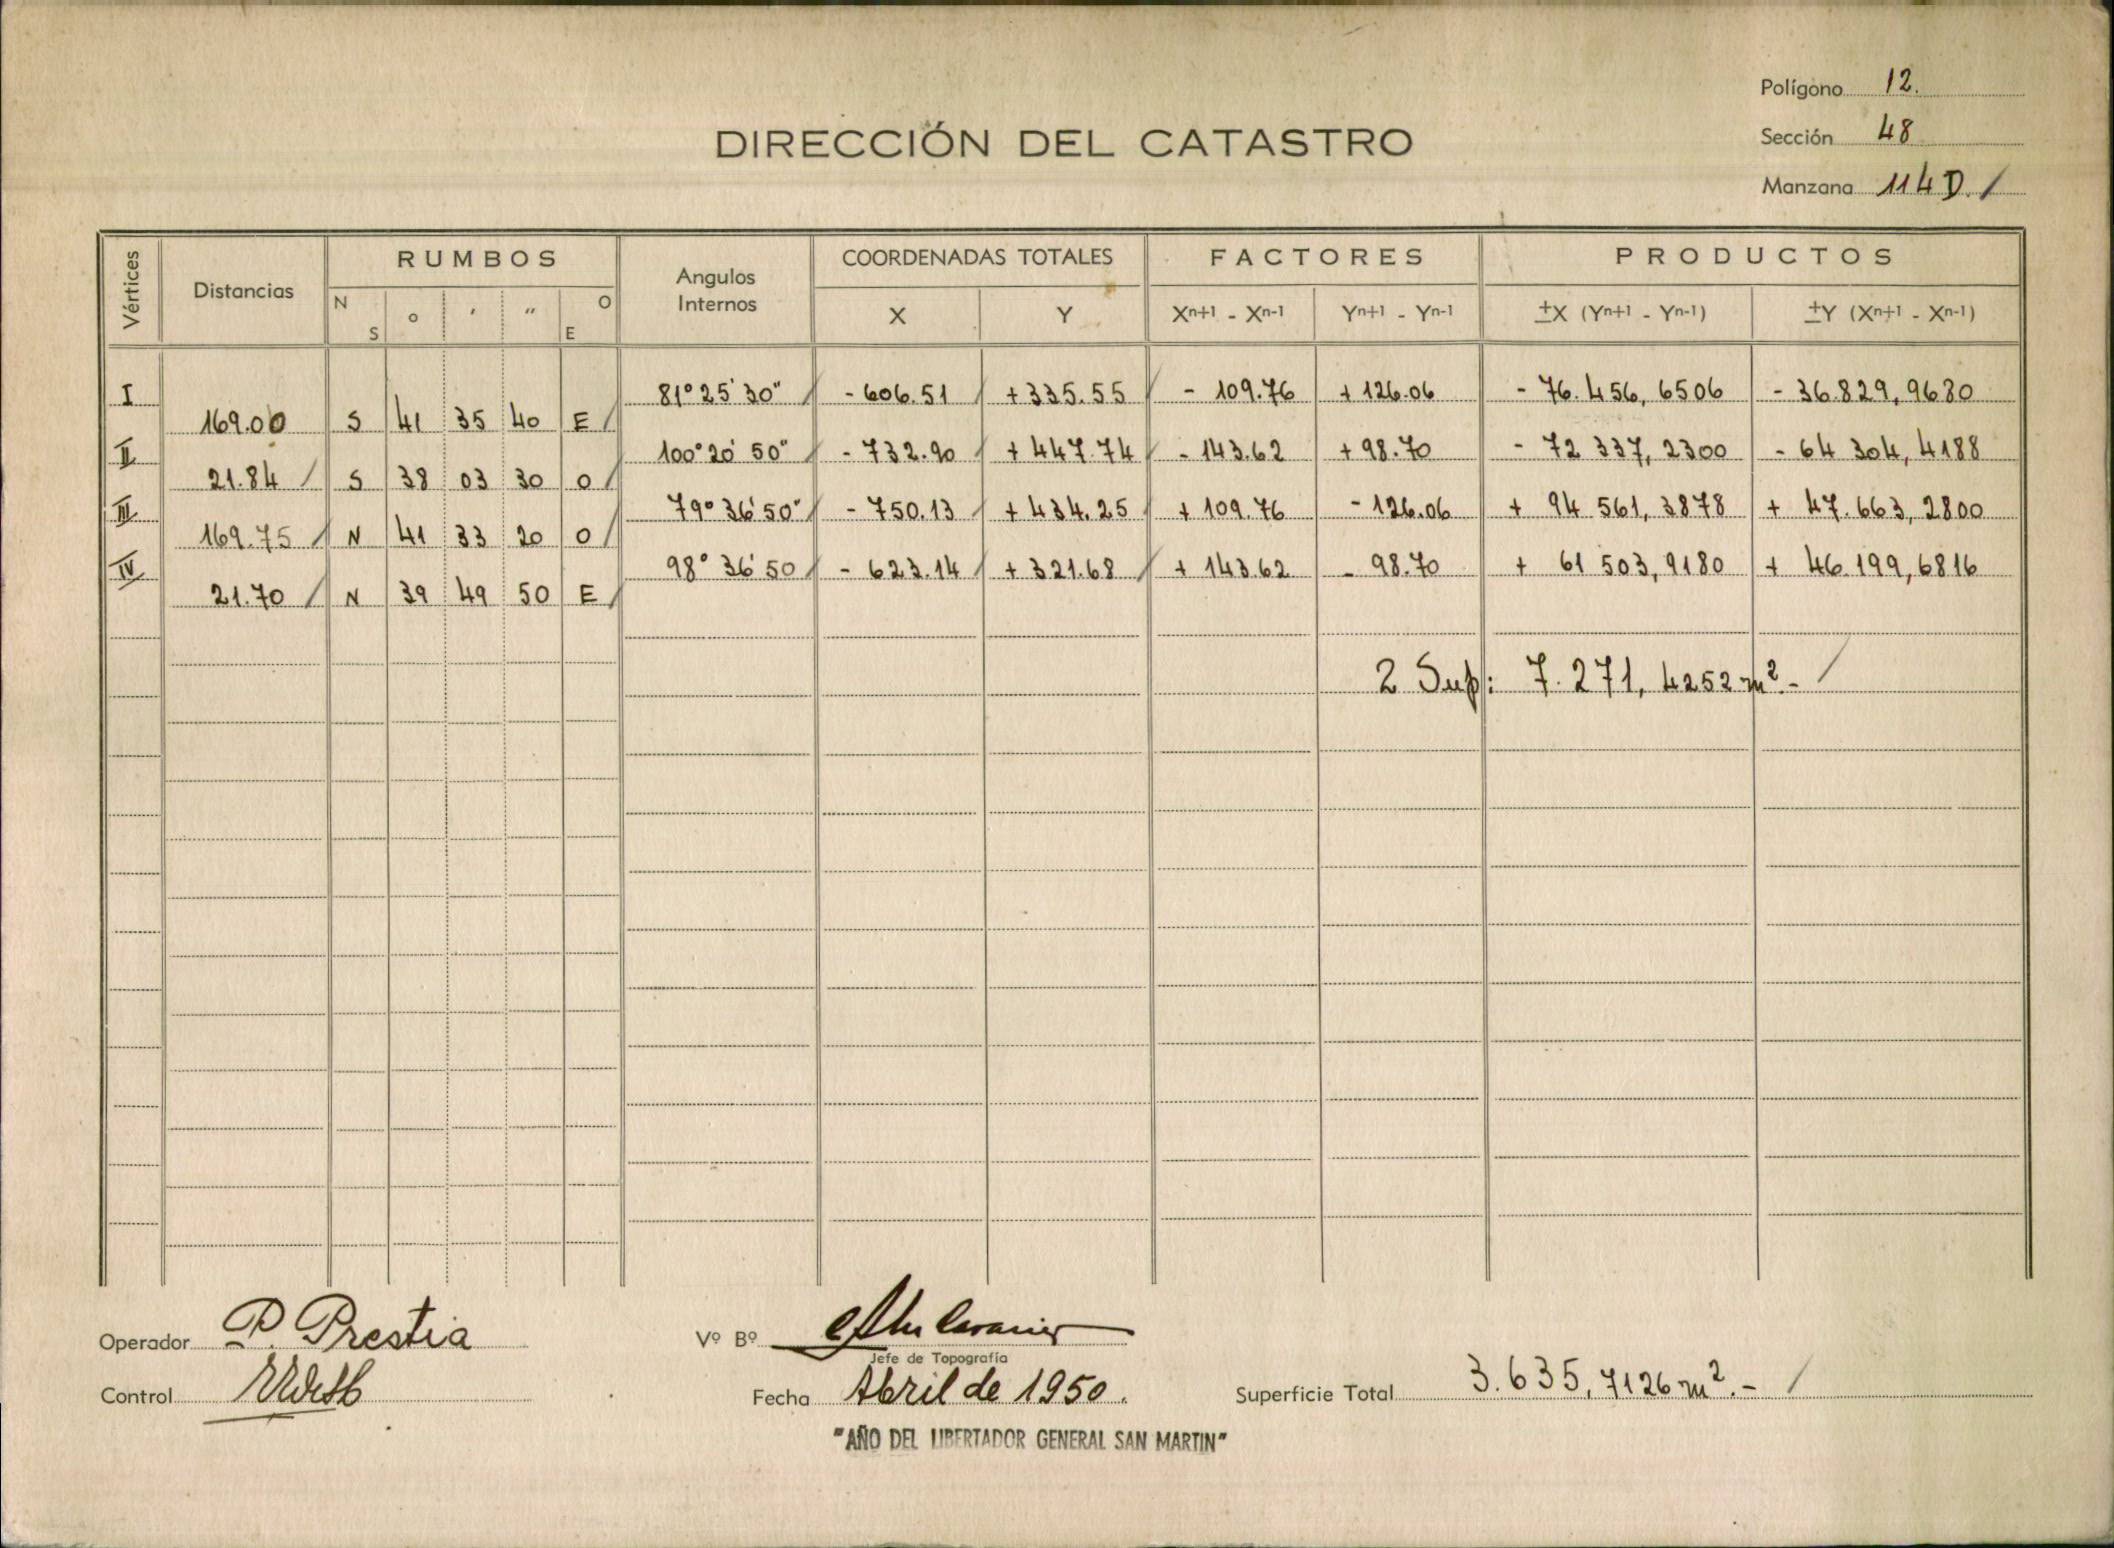 Polígono 12.
DIRECCIÓN DEL CATASTRO
Sección 48
Manzana 114 D. /
Vértices Distancias RUMBOS Angulos Internos COORDENADAS TOTALES FACTORES PRODUCTOS
N S ° ' " O E X Y Xn+1 - Xn-1 Yn+1 - Yn-1 ±X (Yn+1 - Yn-1) ±Y (Xn+1 - Xn-1)
I 81° 25' 30" / - 606.51 / + 335.55 / - 109.76 + 126.06 - 76.456,6506 - 36.829,9680
169.00 S 41 35 40 E /
II 100° 20' 50" / - 732.90 + 447.74 / - 143.62 + 98.70 - 72 337,2300 - 64 304,4188
21.84 / S 38 03 30 O /
III 79° 36' 50" / - 750.13 / + 434.25 / + 109.76 - 126.06 + 94 561,3878 + 47.663,2800
169.75 / N 41 33 20 O /
IV 98° 36' 50 / - 623.14 / + 321.68 / + 143.62 - 98.70 + 61 503,9180 + 46.199,6816
21.70 / N 39 49 50 E /
2 Sup: 7.271,4252 m².- /
Operador P. Prestia
Vº Bº
Jefe de Topografía
Control
Fecha Abril de 1950.
Superficie Total 3.635,7126 m².- /
"AÑO DEL LIBERTADOR GENERAL SAN MARTIN"